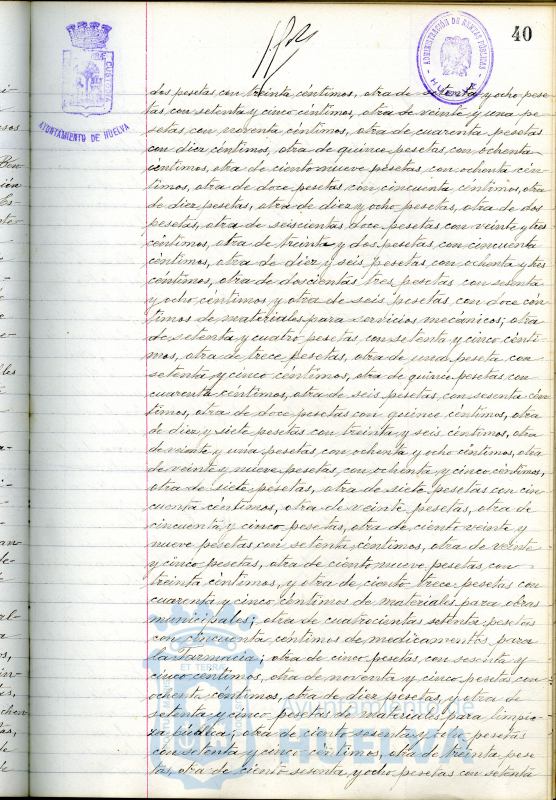 40
ADMINISTRACIÓN DE RENTAS PÚBLICAS
HUELVA
AYUNTAMIENTO DE HUELVA
dos pesetas con treinta céntimos, otra de setenta y ocho pese-
tas con setenta y cinco céntimos, otra de veinte y una pe-
setas con noventa céntimos, otra de cuarenta pesetas
con diez céntimos, otra de quince pesetas con ochenta
céntimos, otra de ciento nueve pesetas con ochenta cén-
timos, otra de doce pesetas con cincuenta céntimos, otra
de diez pesetas, otra de diez y ocho pesetas, otra de dos
pesetas, otra de seiscientas doce pesetas con veinte y tres
céntimos, otra de treinta y dos pesetas con cincuenta
céntimos, otra de diez y seis pesetas con ochenta y tres
céntimos, otra de doscientas tres pesetas con sesenta
y ocho céntimos y otra de seis pesetas con doce cén
timos de materiales para servicios mecánicos; otra
de setenta y cuatro pesetas con setenta y cinco cénti-
mos, otra de trece pesetas, otra de una peseta con
setenta y cinco céntimos, otra de quince pesetas con
cuarenta céntimos, otra de seis pesetas con sesenta cén
timos, otra de doce pesetas con quince céntimos, otra
de diez y siete pesetas con treinta y seis céntimos, otra
de veinte y una pesetas con ochenta y ocho céntimos, otra
de veinte y nueve pesetas con ochenta y cinco céntimos,
otra de siete pesetas, otra de siete pesetas con cin
cuenta céntimos, otra de veinte pesetas, otra de
cincuenta y cinco pesetas, otra de ciento veinte y
nueve pesetas con setenta céntimos, otra de veinte
y cinco pesetas, otra de ciento nueve pesetas con
treinta céntimos, y otra de ciento trece pesetas con
cuarenta y cinco céntimos de materiales para obras
municipales; otra de cuatrocientas setenta pesetas
con cincuenta céntimos de medicamentos para
la Farmacia; otra de cinco pesetas con sesenta y
cinco céntimos, otra de noventa y cinco pesetas con
ochenta céntimos, otra de diez pesetas, y otra de
setenta y cinco pesetas de materiales para limpie-
za pública; otra de ciento sesenta y ocho pesetas
con setenta y cinco céntimos, otra de treinta pese
tas, otra de ciento sesenta y ocho pesetas con setenta
ET TERRA
Ayuntamiento de
HUELVA